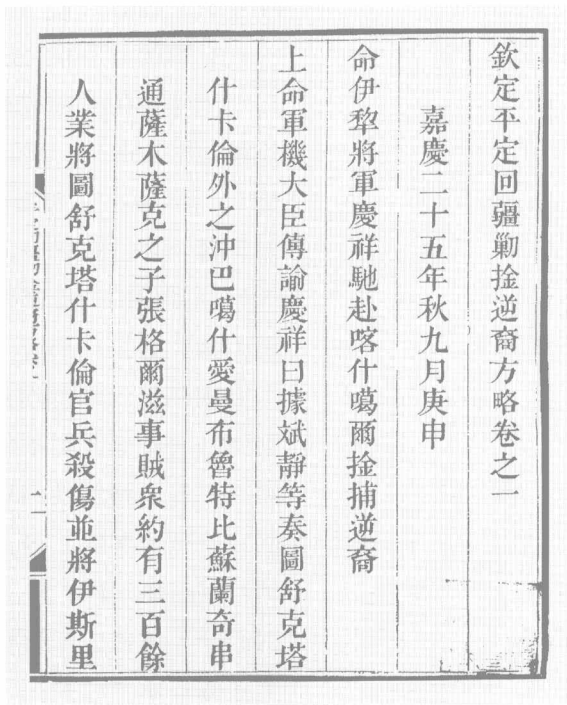 欽定平定回疆勦捦逆裔方略卷之一
嘉慶二十五年秋九月庚申
命伊犂將軍慶祥馳赴喀什噶爾捦捕逆裔
上命軍機大臣傳諭慶祥曰據斌靜等奏圖舒克塔
什卡倫外之沖巴噶什愛曼布魯特比蘇蘭奇串
通薩木薩克之子張格爾滋事賊衆約有三百餘
人業將圖舒克塔什卡倫官兵殺傷並將伊斯里